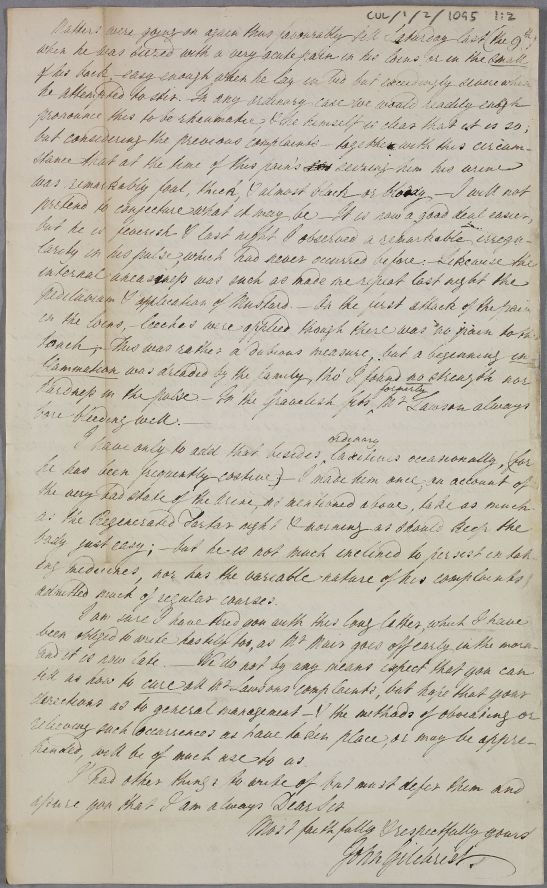 CUL/1/2/1095 1:2
Matters were going on again thus favourably till Saturday last (the 9th)
when he was seized with a very acute pain in his loins, or in the small
of his back – easy enough when he lay in bed but exceedingly severe when
he attempted to stir. In any ordinary case we would readily enough
pronounce this to be rheumatic & he himself is clear that it is so;
but considering the previous complaints – together with this circum-
stance that at the time of this pain's seizing him his urine
was remarkably foul, thick, & almost black or bloody – I will not
pretend to conjecture what it may be – It is now a good deal easier,
but he is feverish & last night I observed a remarkable irregu-
larity in his pulse which had never occurred before; – Likewise the
internal uneasiness was such as made me repeat last night the
Pediluvium & application of Mustard. – On the first attack of the pain
in the loins, – Leeches were applied though there was no pain to the
touch; – This was rather a dubious measure, but a beginning in-
flammation was dreaded by the family, tho' I found no strength nor
hardness in the pulse – In the gravelish fits formerly Mr Lawson always
bore bleeding well. –
I have only to add that besides ordinary Laxatives occasionally, (for
he has been frequently costive) – I made him once, on account of
the very bad state of the Urine, as mentioned above, take as much
as the Regenerated Tartar night & morning as should keep the
body just easy; – but he is not much inclined to persist in tak-
ing medicines, nor has the variable nature of his complaints
admitted much of regular courses.
I am sure I have tired you with this long letter, which I have
been obliged to write hastily too, as Mr Mair goes off early in the morn-
and it is now late. – We do not by any means expect that you can
tell us how to cure all Mr Lawsons complaints, but hope that your
directions as to general management – & the methods of obviating or
relieving such occurrences as have taken place, or may be appre-
hended, will be of much use to us.
I had other things to write of but must defer them and
assure you that I am always Dear Sir
Most faithfully & respectfully yours
John Gilchrist